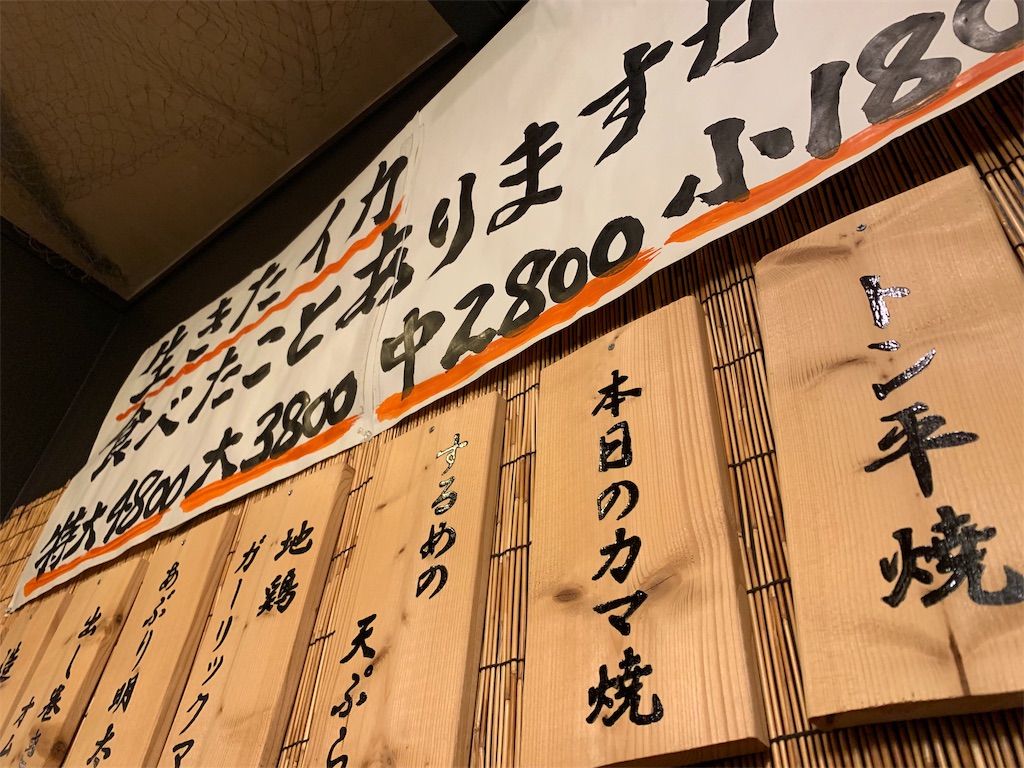 生きたイカ
食べたことありますか
特大4800 大3800 中2800 小180
トン平焼
本日のカマ焼
するめの
天ぷら
地鶏
ガーリック
あぶり明太
出し巻